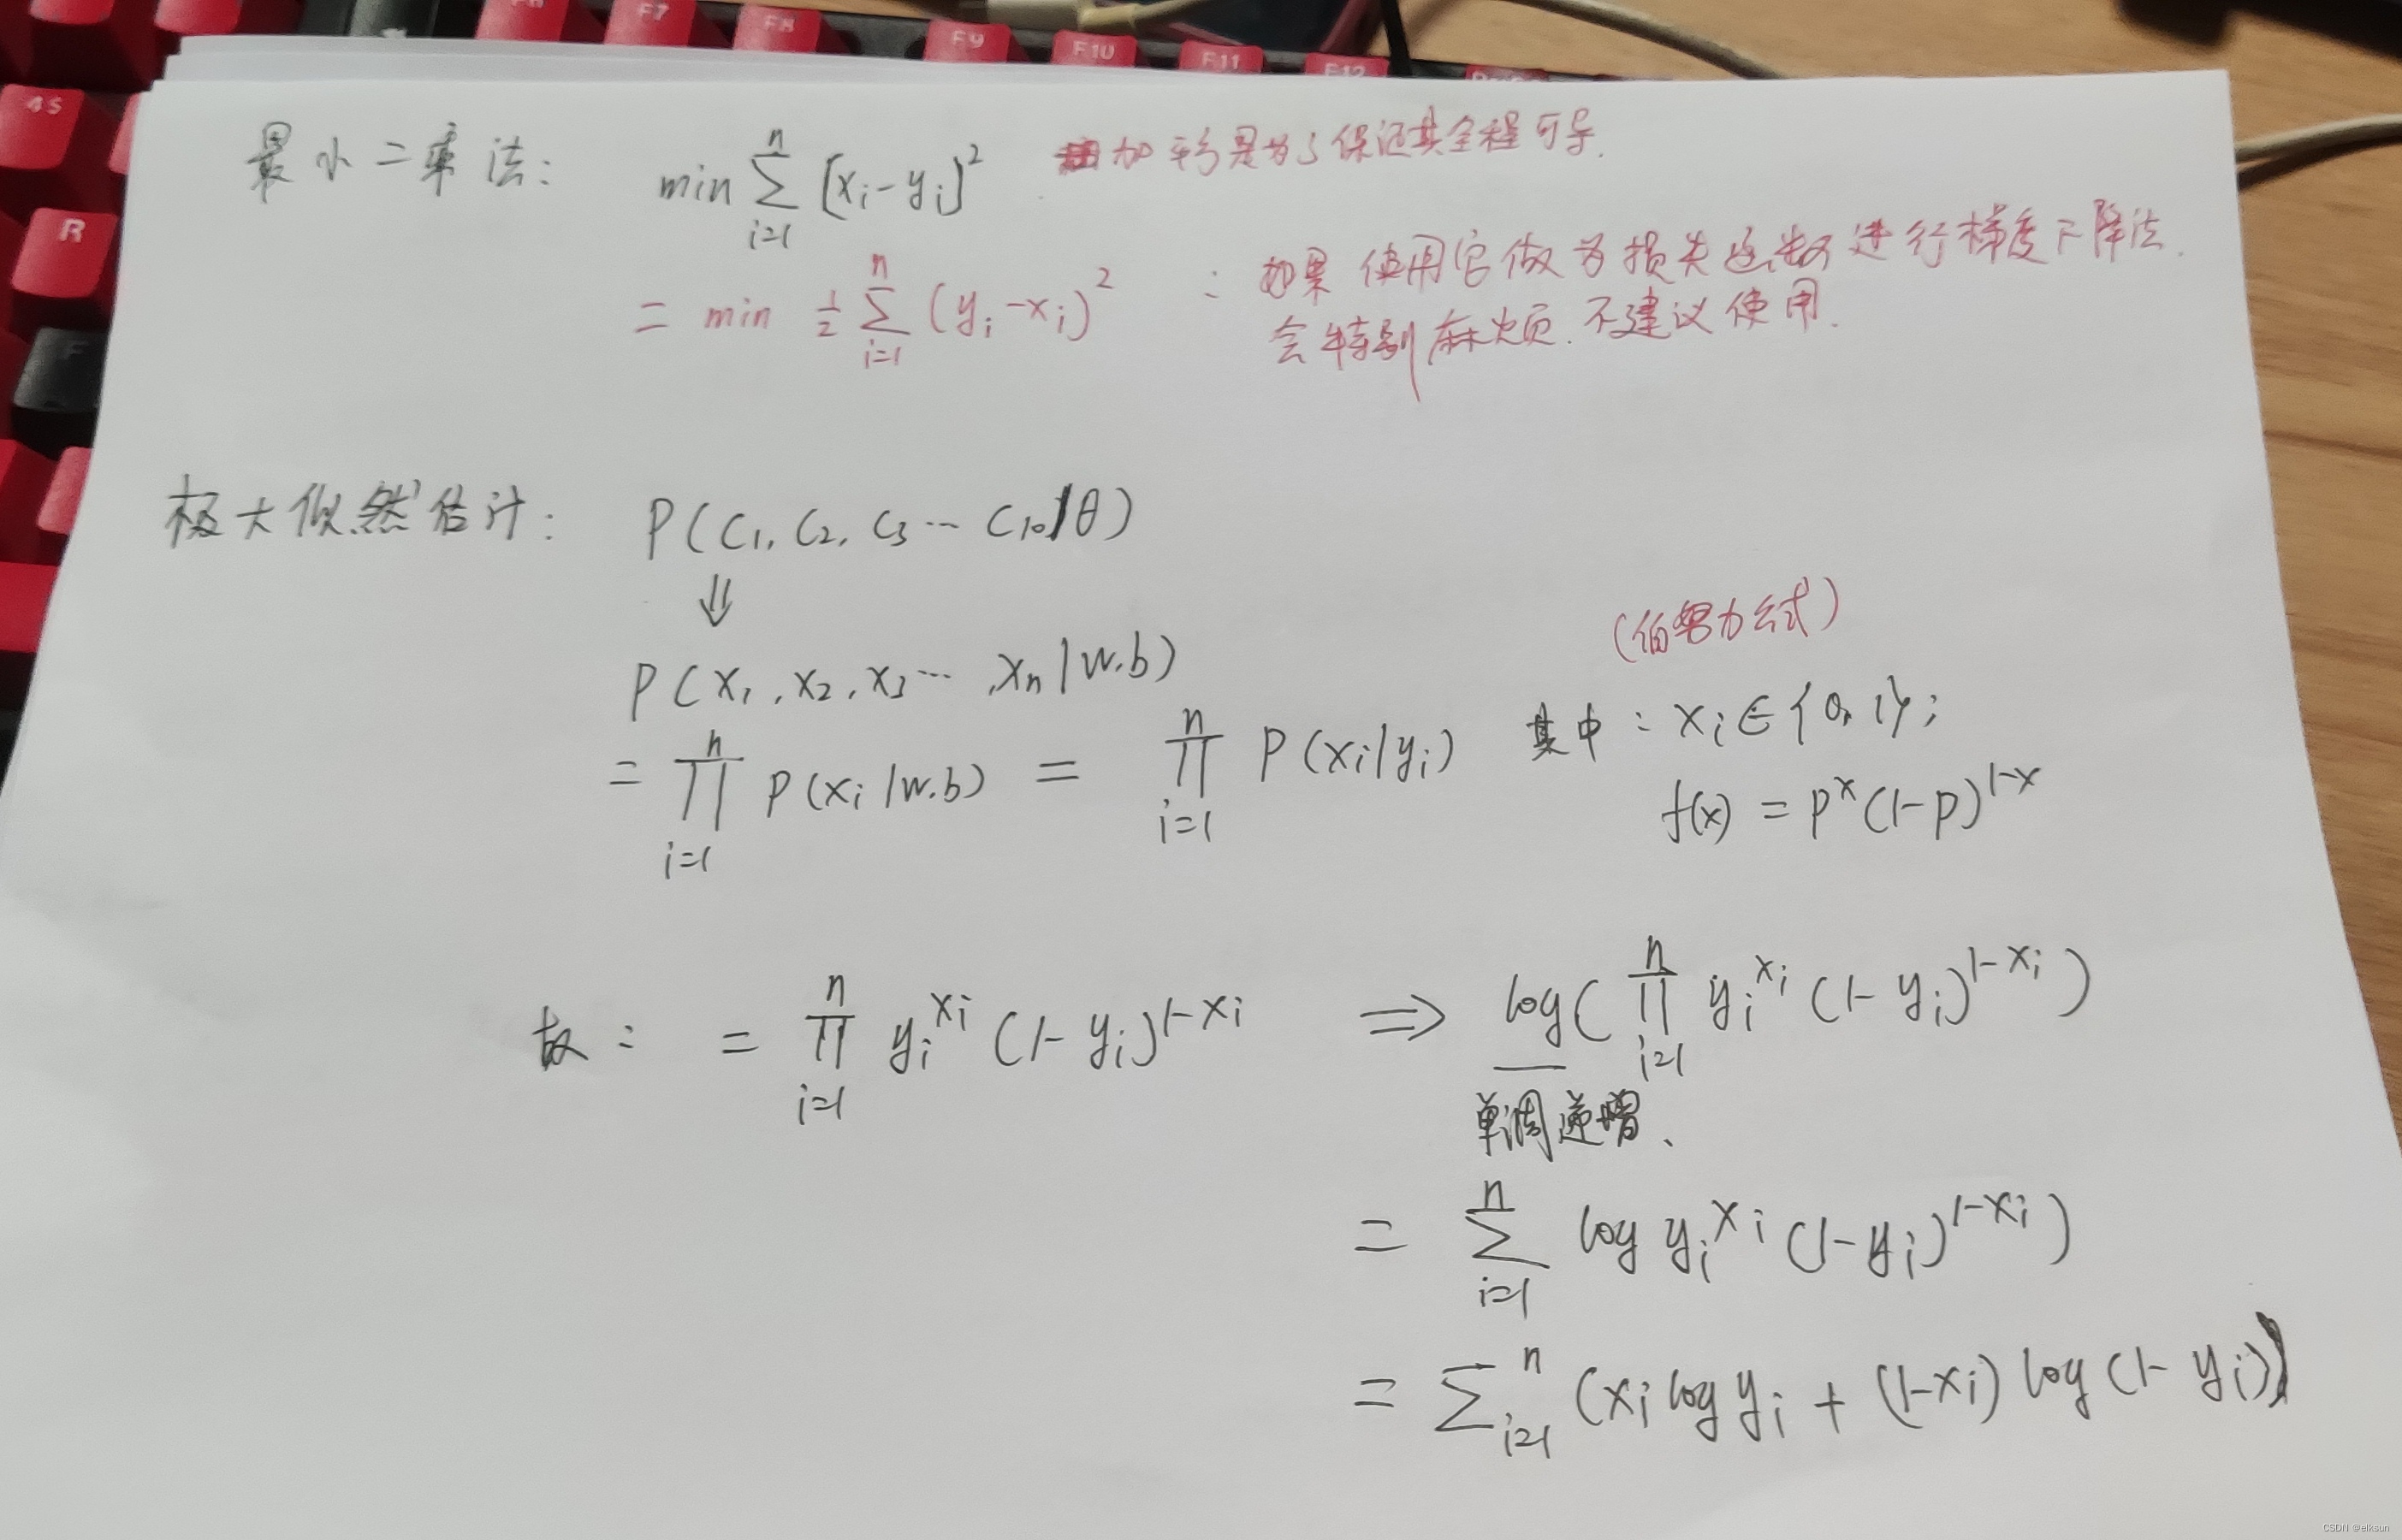 最小二乘法: min ∑_{i=1}^{n} [x_i - y_i]^2 加平方是为了保证其全程可导.
= min 1/2 ∑_{i=1}^{n} (y_i - x_i)^2 : 如果使用它做为损失函数进行梯度下降法.
会特别麻烦.不建议使用.
极大似然估计: P(C_1, C_2, C_3 ... C_10 | θ)
⇓
(伯努力公式)
P(x_1, x_2, x_3 ... , x_n | W.b)
= ∏_{i=1}^{n} P(x_i | W.b) = ∏_{i=1}^{n} P(x_i | y_i) 其中: x_i ∈ {0, 1};
f(x) = P^x (1-P)^{1-x}
故: = ∏_{i=1}^{n} y_i^{x_i} (1-y_i)^{1-x_i} ⇒ log( ∏_{i=1}^{n} y_i^{x_i} (1-y_i)^{1-x_i} )
单调递增、
= ∑_{i=1}^{n} log y_i^{x_i} (1-y_i)^{1-x_i})
= ∑_{i=1}^{n} (x_i log y_i + (1-x_i) log (1-y_i))
4$
R
F
F6
F7
F8
F9
F10
F11
F12
CSDN @elksun